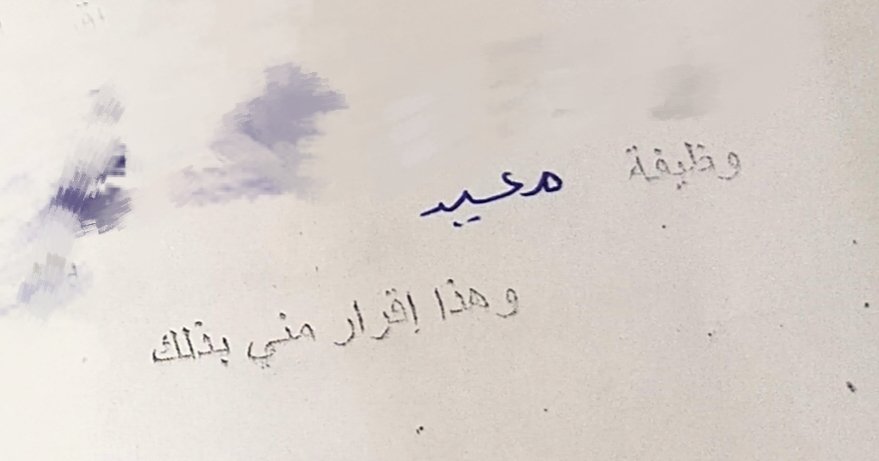 وظيفة معيد
وهذا إقرار مني بذلك